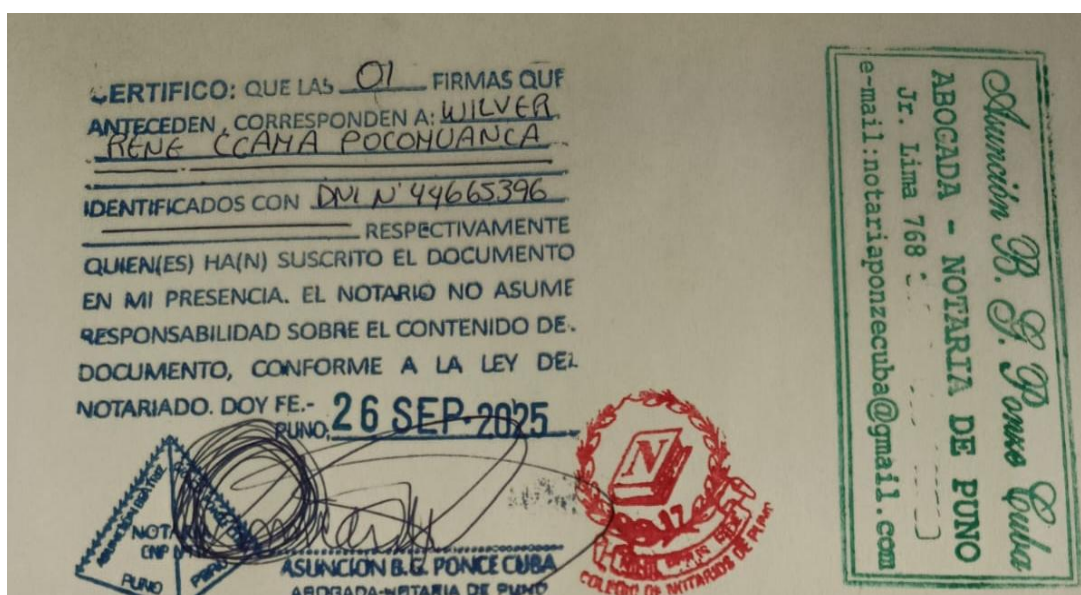 CERTIFICO: QUE LAS 01 FIRMAS QUE
ANTECEDEN, CORRESPONDEN A: WILVER
RENE CCAMA POCOHUANCA
IDENTIFICADOS CON DNI N° 44665396
RESPECTIVAMENTE
QUIEN(ES) HA(N) SUSCRITO EL DOCUMENTO
EN MI PRESENCIA. EL NOTARIO NO ASUME
RESPONSABILIDAD SOBRE EL CONTENIDO DE
DOCUMENTO, CONFORME A LA LEY DEL
NOTARIADO. DOY FE.-
PUNO, 26 SEP 2025
PUNO
PUNO
ASUNCION B.G. PONCE CUBA
ABOGADA-NOTARIA DE PUNO
N
COLEGIO DE NOTARIOS DE PUNO
Asunción B. G. Ponse Cuba
ABOGADA - NOTARIA DE PUNO
Jr. Lima 768
e-mail:notariaponzecuba@gmail.com